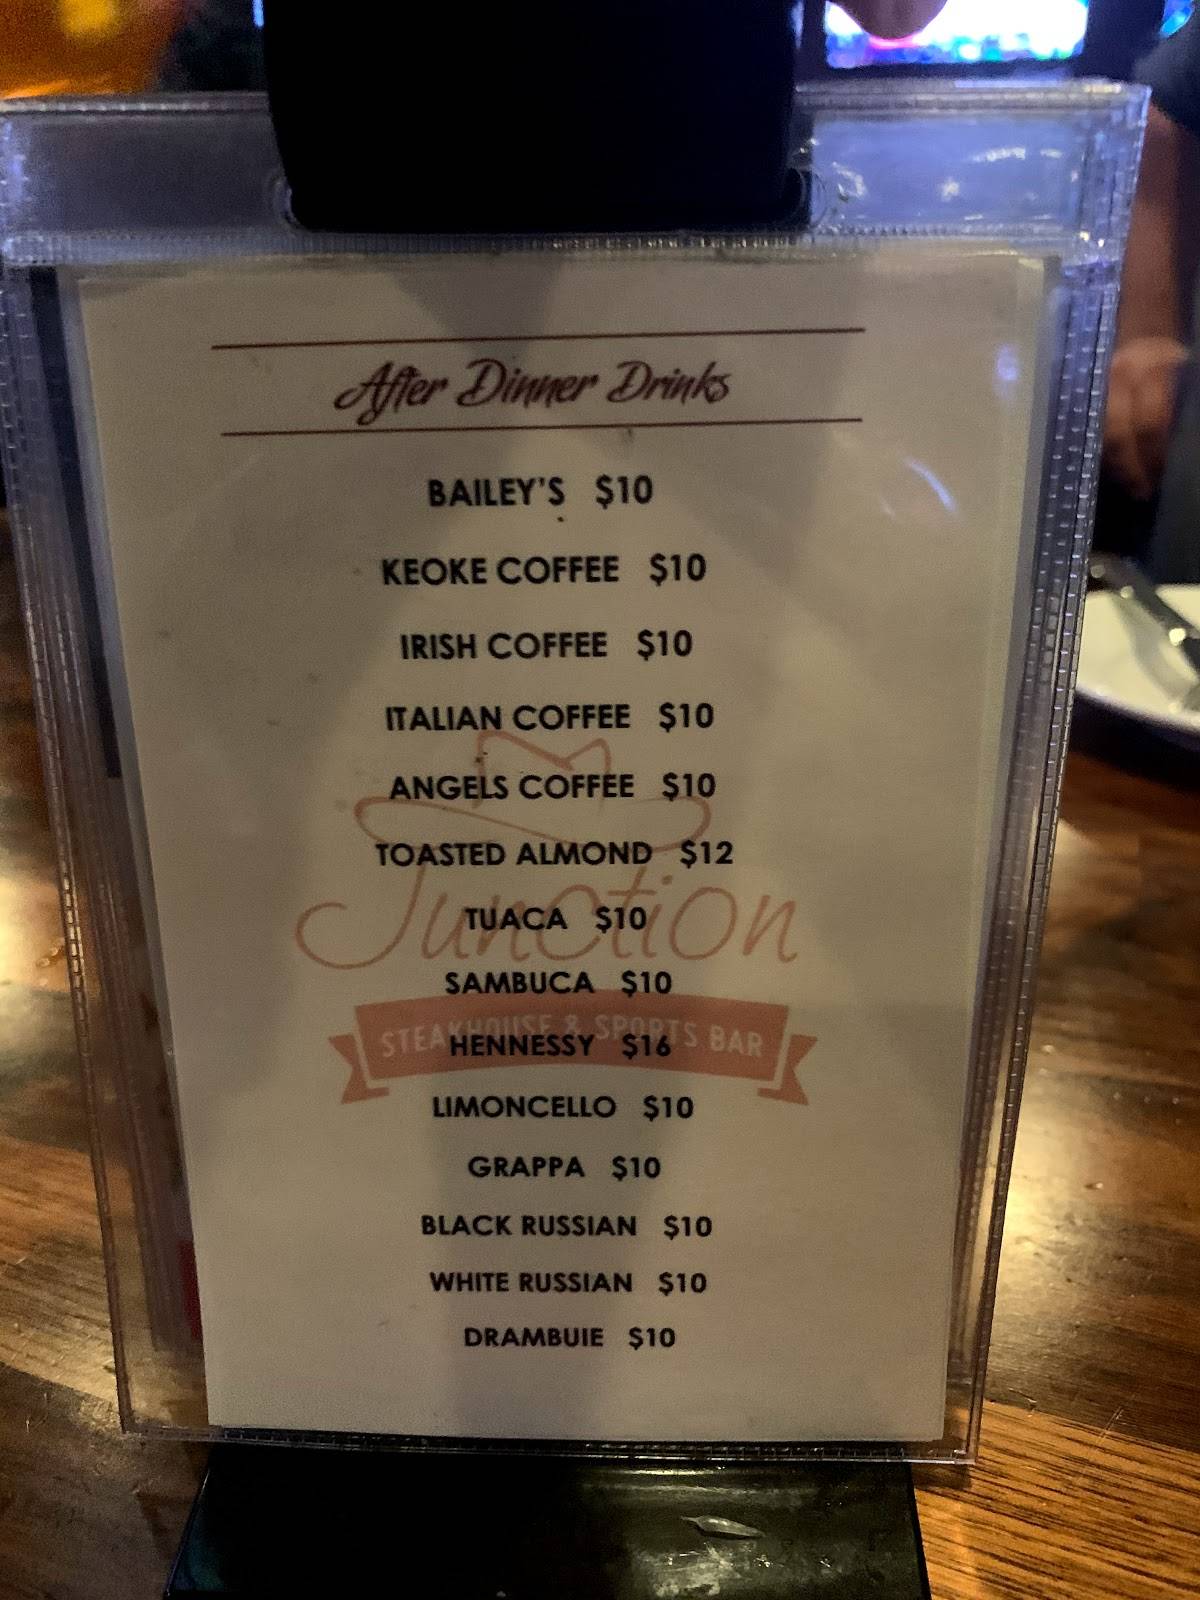 After Dinner Drinks
BAILEY'S $10
KEOKE COFFEE $10
IRISH COFFEE $10
ITALIAN COFFEE $10
ANGELS COFFEE $10
TOASTED ALMOND $12
Junction
TUACA $10
SAMBUCA $10
STEAKHOUSE & SPORTS BAR
HENNESSY $16
LIMONCELLO $10
GRAPPA $10
BLACK RUSSIAN $10
WHITE RUSSIAN $10
DRAMBUIE $10